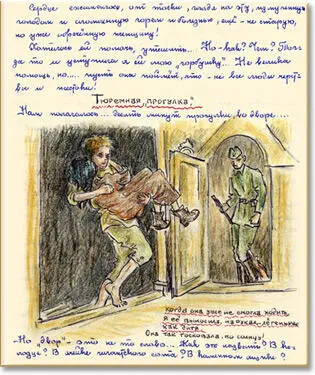 Сердце сжималось, от тоски, глядя на эту, измученную
голодом и сломленную горем и болезнью, ещё - не старую,
но уже обречённую женщину!
Хотелось ей помочь, утешить... Но - как? Чем?
за то и уступила я ей мою „горбушку"... Не велика
помощь, но.... пусть она поймёт, что - не все люди черст-
вы и жестоки.
Тюремная „прогулка"
Нам полагалось... десять минут прогулки, во дворе....
Когда она уже не смогла ходить,
я её выносила, на руках - лёгенькую
как дитя.
Она так тосковала по солнцу!
-Но „двор" - это не то слово... Как это назвать? В ко-
лодце? В ячейке гигантского сота? В каменном мешке?